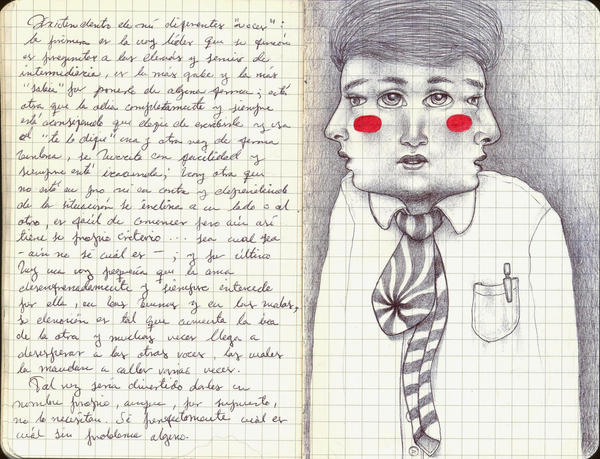 Existen dentro de mí diferentes "voces":
la primera es la voz líder que su función
es preguntar a las demás y servir de
intermediaria, es la más sabe y la más
"sabia" por ponerle de alguna forma; está
otra que la odia completamente y siempre
está aconsejando que dejes de escribirle y usa
el "te lo dije" una y otra vez de forma
, se invierte con facilidad y
siempre está iracunda; hay otra que
no está en pro ni en contra y dependiendo
de la situación se inclina a un lado o al
otro, es fácil de convencer pero aún así
tiene su propio criterio ... sea cual sea
- aún no sé cuál es - ; y por último
hay una voz pequeña que la ama
desenfrenadamente y siempre intercede
por ella, en las buenas y en las malas,
su devoción es tal que aumenta la ira
de la otra y muchas veces llega a
desesperar a las otras voces, las cuales
la mandan a callar varias veces.
Tal vez sería divertido darles un
nombre propio, aunque, por supuesto,
no lo necesitan. Sé perfectamente cuál es
cuál sin problema alguno.